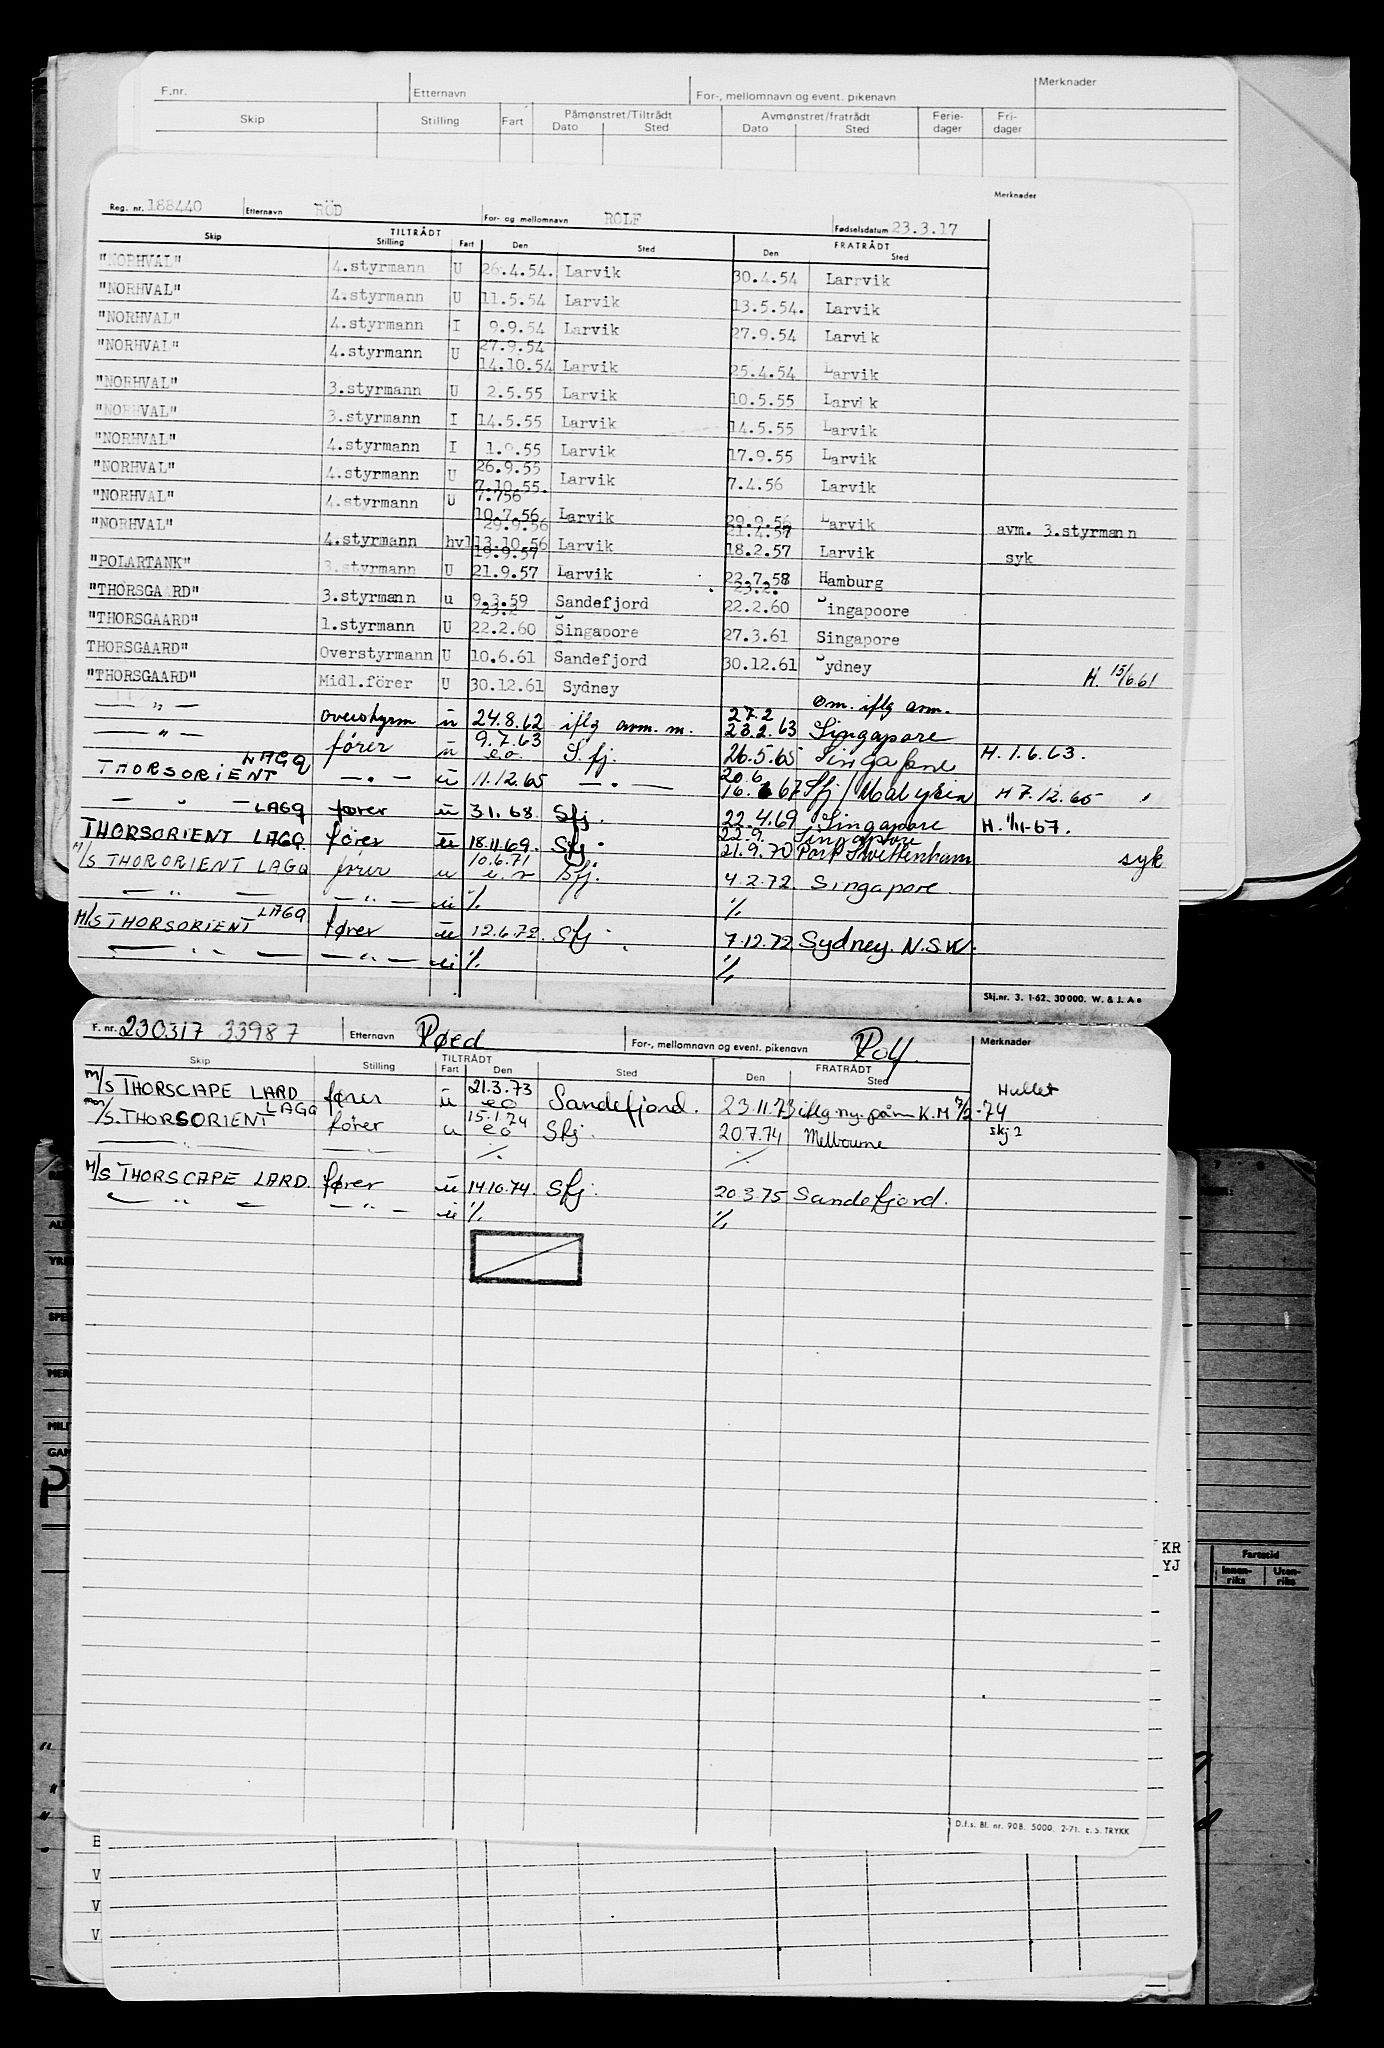 F.nr. Etternavn For-, mellomnavn og event. pikenavn Merknader
Skip Stilling Fart Påmønstret/Tiltrådt Avmønstret/fratrådt Ferie- Fri-
Dato Sted Dato Sted dager dager
Merknader
Reg. nr. 188440 Etternavn RÖD For- og mellomnavn ROLF Fødselsdatum 23.3.17
TILTRÅDT FRATRÅDT
Skip Stilling Fart Den Sted Den Sted
"NORHVAL" 4.styrmann U 26.4.54. Larvik 30.4.54 Larrvik
"NORHVAL" 4.styrmann U 11.5.54 Larvik 13.5.54. Larvik
"NORHVAL" 4.styrmann I 9.9.54 Larvik 27.9.54 Larvik
27.9.54
"NORHVAL" 4.styrmann U 14.10.54 Larvik 25.4.54 Larvik
"NORHVAL" 3.styrmann U 2.5.55 Larvik 10.5.55 Larvik
"NORHVAL" 3.styrmann I 14.5.55 Larvik 14.5.55 Larvik
"NORHVAL" 4.styrmann I 1.9.55 Larvik 17.9.55 Larvik
26.9.55
"NORHVAL" 4.styrmann U 7.10.55. Larvik 7.4.56 Larvik
7.756
"NORHVAL" 4.styrmann U 10.7.56 Larvik 29.9.56 Larvik avm. 3.styrmann
29.9.56 21.4.57
"NORHVAL" 4.styrmann hvl 13.10.56 Larvik 18.2.57 Larvik syk
19.9.57
"POLARTANK" 3.styrmann U 21.9.57 Larvik 22.7.58 Hamburg
23.2.
"THORSGAARD" 3.styrmann u 9.3.59 Sandefjord 22.2.60 Singapoore
23.2
"THORSGAARD" 1.styrmann U 22.2.60 Singapore 27.3.61 Singapore
THORSGAARD" Overstyrmann U 10.6.61 Sandefjord 30.12.61 Sydney H. 15/6.61
"THORSGAARD" Midl.förer U 30.12.61 Sydney om. iflg avm.
27.2
— " — overstyrm u 24.8.62 iflg avm. m. 23.2.63 Singapore
9.7.63
— " — fører u eo. S.fj. 26.5.65 Singapore H. 1.6.63.
LAGQ 20.6
THORSORIENT — " — u 11.12.65 — " — 16. 67 Sfj / H 7.12.65
— " — LAGQ fører u 3.1.68. Sfj. 22.4.69 Singapore H. 1/11-67.
22.9. Singapore
THORSORIENT LAGQ. fører u 18.11.69. Sfj. 21.9.70 Port Swettenham syk
10.6.71
M/S THORORIENT LAGQ fører u Sfj. 4.2.72. Singapore
— " — — " — u %. %.
M/S THORSORIENT LAGQ fører u 12.6.72. Sfj. 7.12.72 Sydney. N.S.W.
— " — — " — u %. %
Skj.nr. 3. 1-62. 30000. W. & J. A s
F. nr. 230317 33987 Etternavn Røed For-, mellomnavn og event. pikenavn Rolf. Merknader
TILTRÅDT FRATRÅDT
Skip Stilling Fart Den Sted Den Sted
21.3.73 Hullet
M/S THORSCAPE LARD fører u eo Sandefjord. 23.11.73 iflg ny. påm K.M 7/2-74
15.1.74
M/S. THORSORIENT LAGQ fører u eo Sfj. 20.7.74 Melbourne skj 2
— " — — " — %. %.
M/S THORSCAPE LARD. fører u 14.10.74. Sfj. 20.3.75 Sandefjord.
— " — — " — u %. %
D.f.s. Bl. nr. 90B. 5000. 2-71. E.S. TRYKK
KR
YJ
Fartstid
Innen-
riks
Uten-
riks